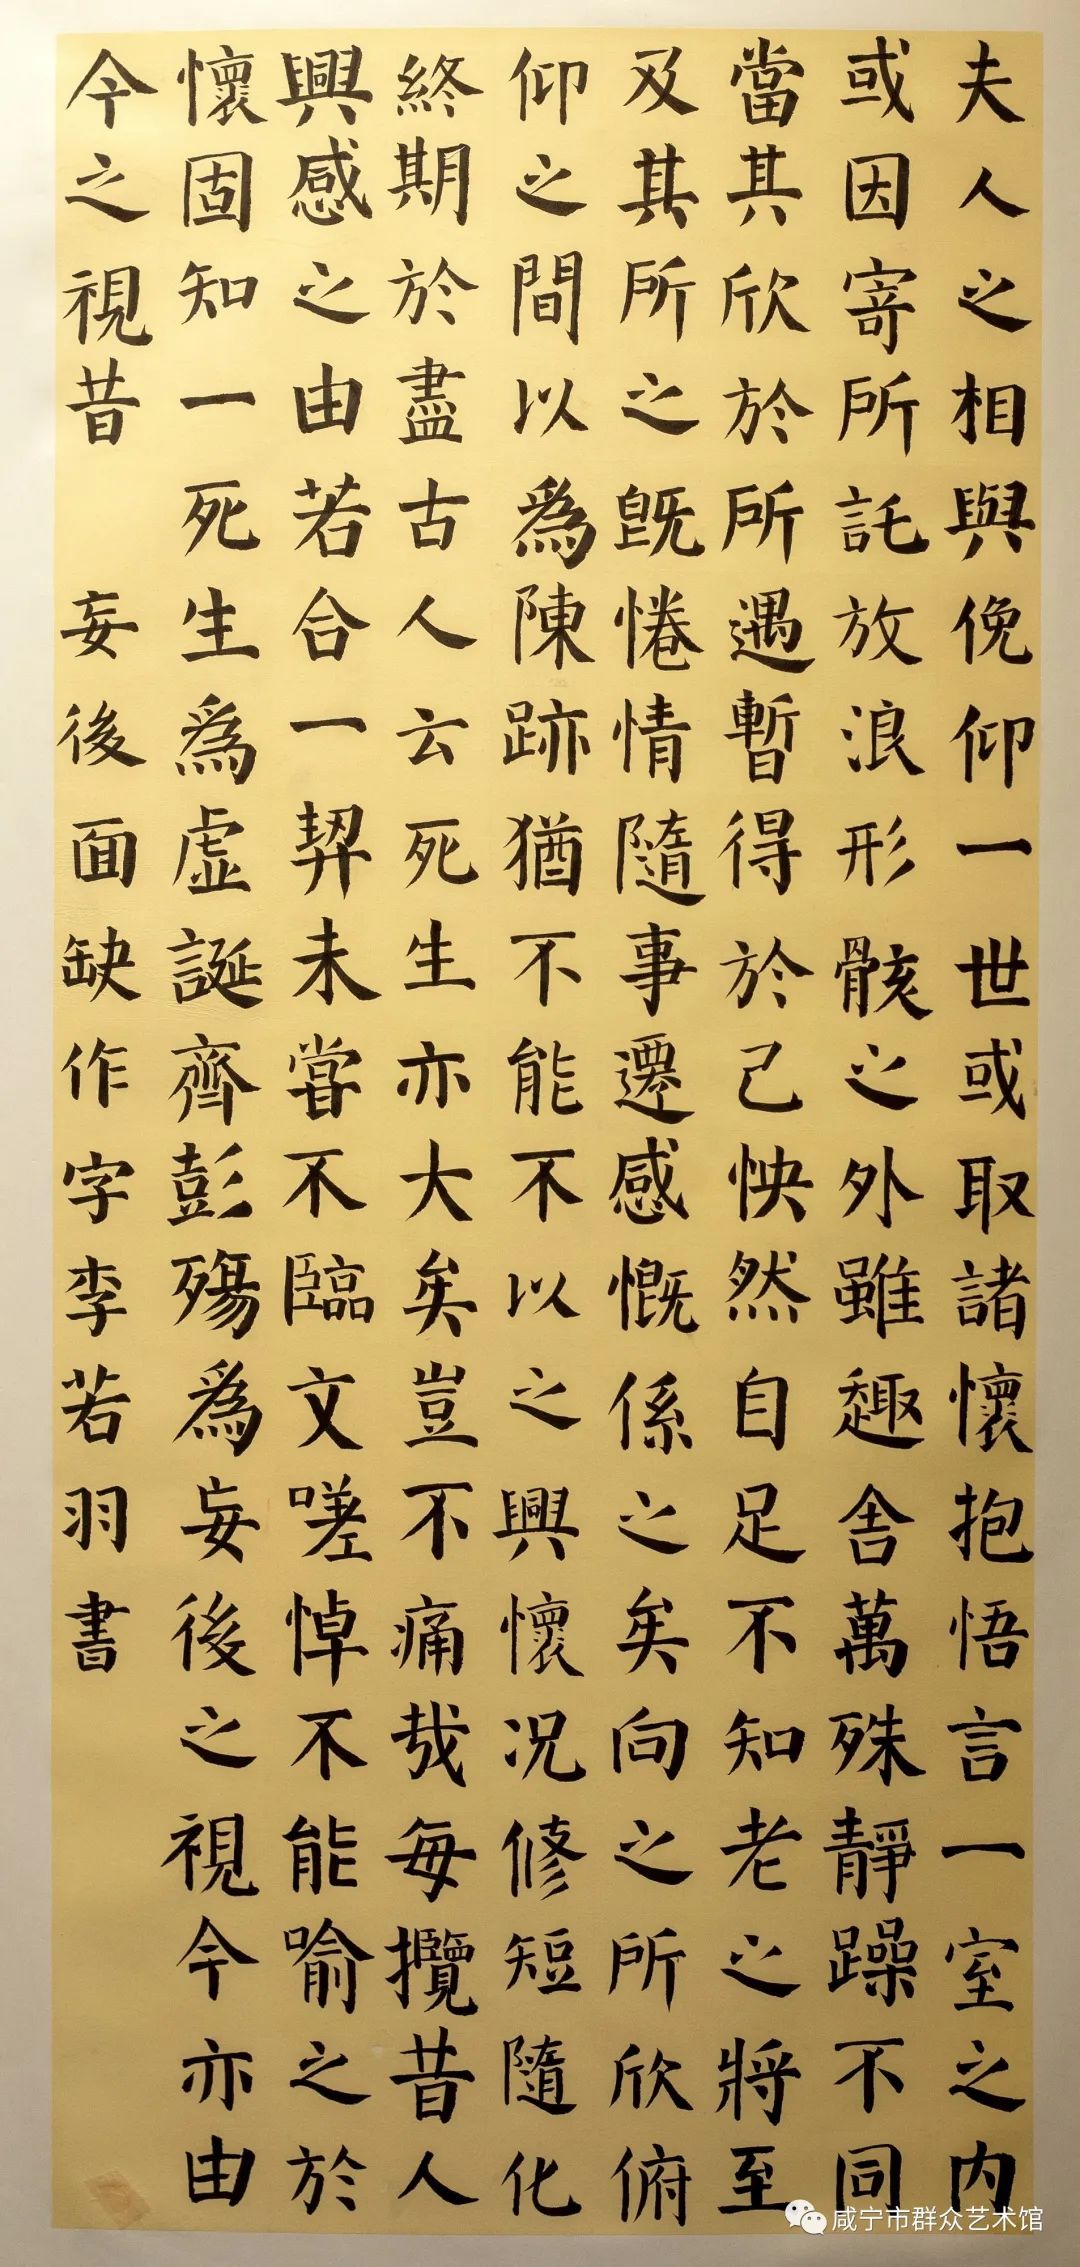 夫人之相與俛仰一世或取諸懷抱悟言一室之内
或因寄所託放浪形骸之外雖趣舍萬殊靜躁不同
當其欣於所遇暫得於己怏然自足不知老之將至
及其所之既惓情隨事遷感慨係之矣向之所欣俯
仰之間以為陳跡猶不能不以之興懷况修短隨化
終期於盡古人云死生亦大矣豈不痛哉每攬昔人
興感之由若合一契未嘗不臨文嗟悼不能喻之於
懷固知一死生為虛誕齊彭殤為妄後之視今亦由
今之視昔 妄後面缺作字李若羽書
咸宁市群众艺术馆